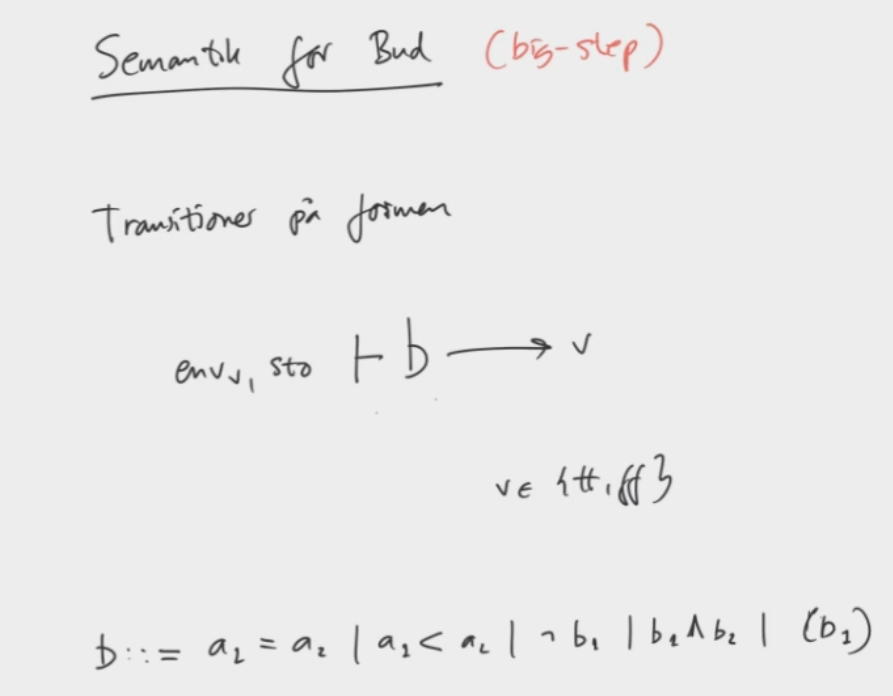 Semantik for Bud (big-step)
Transitioner på formen
env_v, sto ⊢ b → v
v ∈ {tt, ff}
b ::= a₁ = a₂ | a₁ < a₂ | ¬ b₁ | b₁ ∧ b₂ | (b₁)